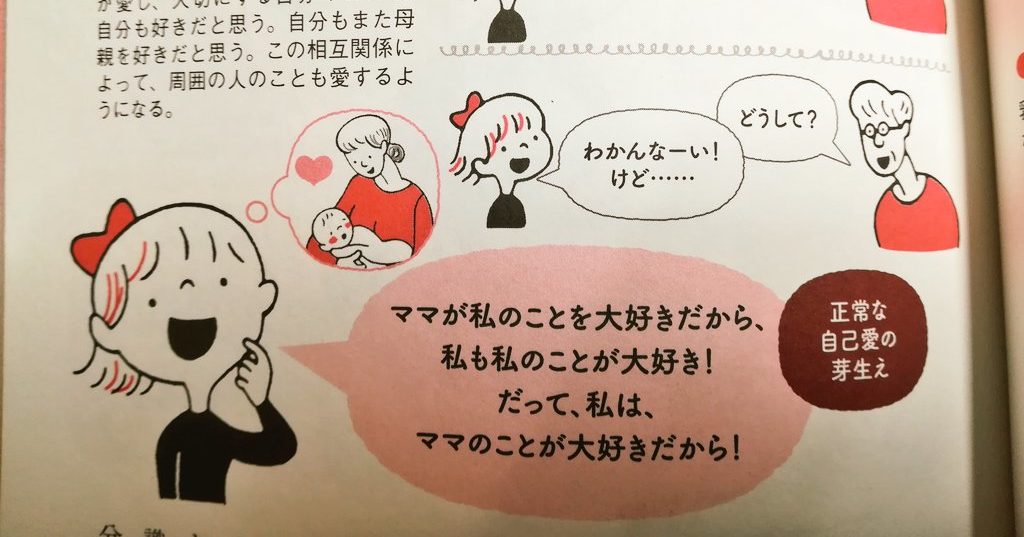 が愛し、大切にする自分
自分も好きだと思う。自分もまた母
親を好きだと思う。この相互関係に
よって、周囲の人のことも愛するよ
うになる。
どうして?
わかんなーい!
けど……
ママが私のことを大好きだから、
私も私のことが大好き!
だって、私は、
ママのことが大好きだから!
正常な
自己愛の
芽生え